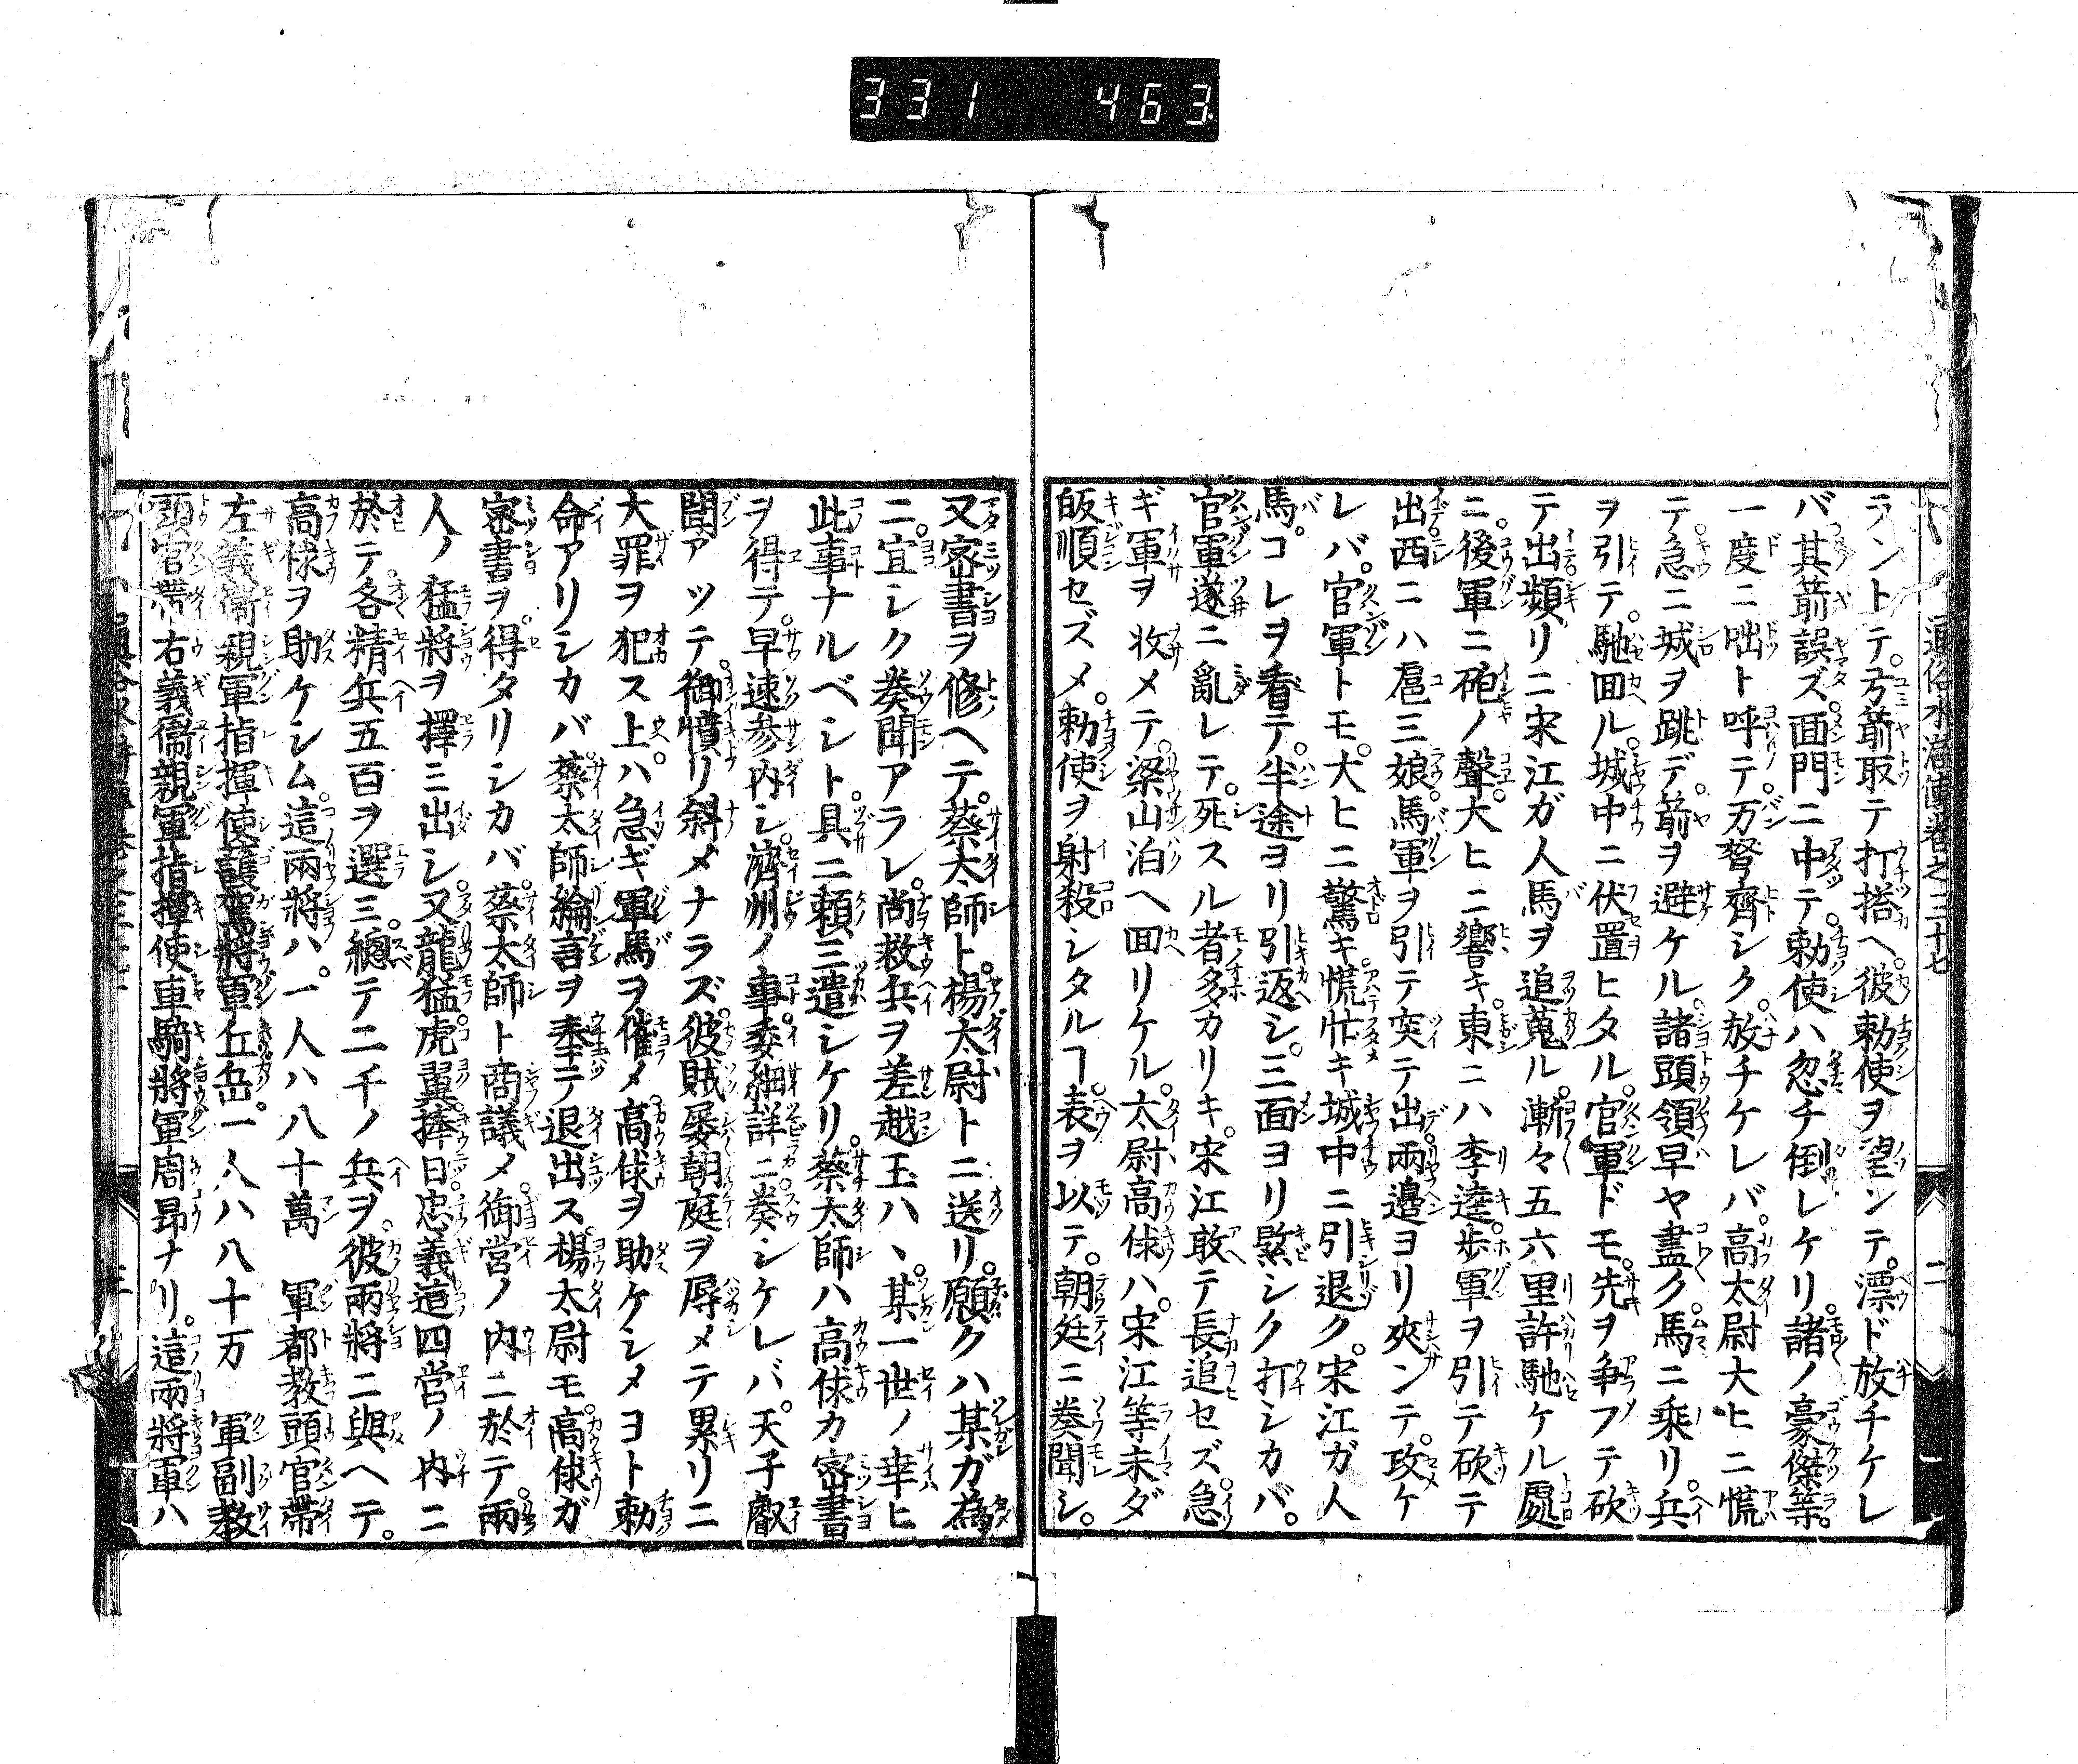 331 463
通俗水滸傳卷之三十七
二
ラントテ。弓箭取テ打搭ヘ。彼勅使ヲ望ンテ。漂ド放チケレ
バ其箭誤ズ。面門ニ中テ。勅使ハ忽チ倒レケリ。諸ノ豪傑等。
一度ニ咄ト呼テ。万弩齊シク。放チケレバ。高太尉大ヒニ慌
テ。急ニ城ヲ跳デ。箭ヲ避ケル。諸頭領早ヤ盡ク。馬ニ乘リ。兵
ヲ引テ。馳回ル。城中ニ伏置ヒタル。官軍ドモ。先ヲ争フテ砍
テ出。頻リニ宋江ガ人馬ヲ追蒐ル。漸々五六里許馳ケル處
ニ。後軍ニ砲ノ聲。大ヒニ響キ。東ニハ李逵。歩軍ヲ引テ砍テ
出。西ニハ扈三娘。馬軍ヲ引テ突テ出。兩邊ヨリ夾ンテ。攻ケ
レバ。官軍トモ。大ヒニ驚キ。慌忙キ城中ニ引退ク。宋江ガ人
馬。コレヲ看テ。半途ヨリ引返シ。三面ヨリ緊シク打シカバ。
官軍遂ニ亂レテ。死スル者多カリキ。宋江敢テ長追セズ。急
ギ軍ヲ收メテ。梁山泊ヘ回リケル。太尉高俅ハ。宋江等未ダ
皈順セズメ。勅使ヲ射殺シタルヿ。表ヲ以テ。朝廷ニ奏聞シ。
又密書ヲ修ヘテ。蔡太師ト。楊太尉トニ送リ。願クハ某ガ為
ニ。宜シク奏聞アラレ。尚救兵ヲ差越玉ハヽ。某一世ノ幸ヒ
此事ナルベシト。具ニ頼ミ遣シケリ。蔡太師ハ高俅カ密書
ヲ得テ。早速參内シ。濟州ノ事。委細詳ニ奏シケレバ。天子叡
聞アッテ。御憤リ斜メナラズ。彼賊屡朝庭ヲ辱メテ累リニ
大罪ヲ犯ス上ハ。急ギ軍馬ヲ催メ。高俅ヲ助ケシメヨト勅
命アリシカバ。蔡太師綸言ヲ奉テ退出ス。楊太尉モ。高俅ガ
密書ヲ。得タリシカバ。蔡太師ト商議メ。御営ノ内ニ於テ。兩
人ノ猛將ヲ擇ミ出シ。又龍猛。虎翼。捧日。忠義。這四営ノ内ニ
於テ。各精兵五百ヲ選ミ。總テ二千ノ兵ヲ。彼兩將ニ與ヘテ。
高俅ヲ助ケシム。這兩將ハ。一人ハ八十萬 軍都教頭官帶
左義衞親軍指揮使護駕將軍丘岳。一人ハ八十万 軍副教
頭官帶右義衞親軍指揮使車騎將軍周昂ナリ。這兩將軍ハ